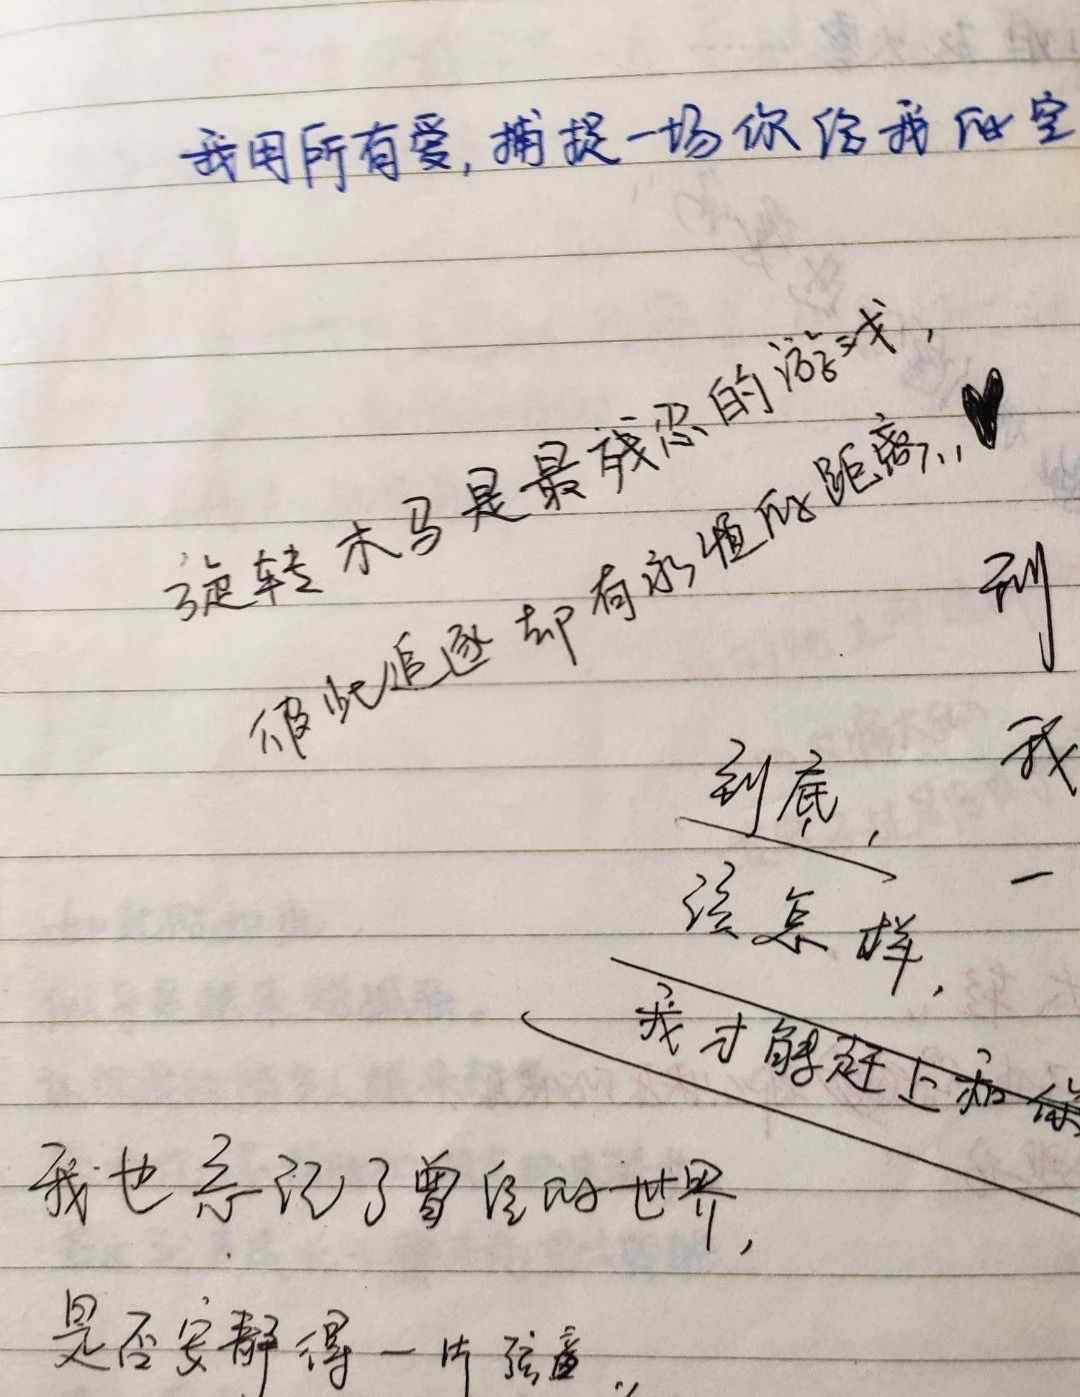 我用所有爱,捕捉一场你给我的空
旋转木马是最残忍的游戏,
彼此追逐却有永恒的距离...
到
我
到底,
一
该怎样,
我才能赶上和你
我也忘记了曾经的世界,
是否安静得一片弦音..